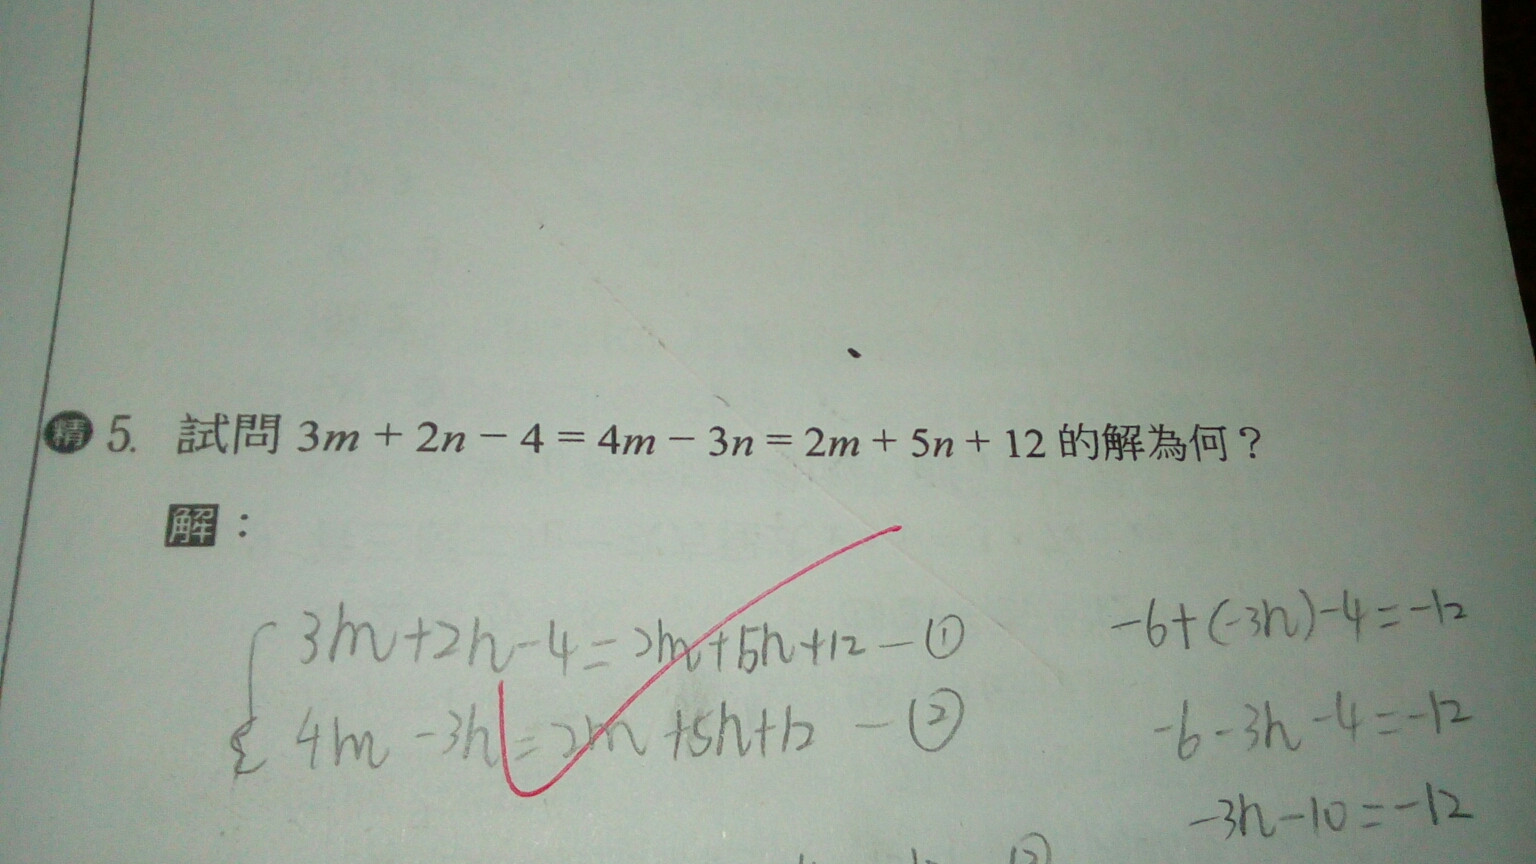 精 5. 試問 3m + 2n − 4 = 4m − 3n = 2m + 5n + 12 的解為何？
解：
3m+2n-4=2m+5n+12 - ①
4m-3n=2m+5n+12 - ②
-6+(-3n)-4=-12
-6-3n-4=-12
-3n-10=-12